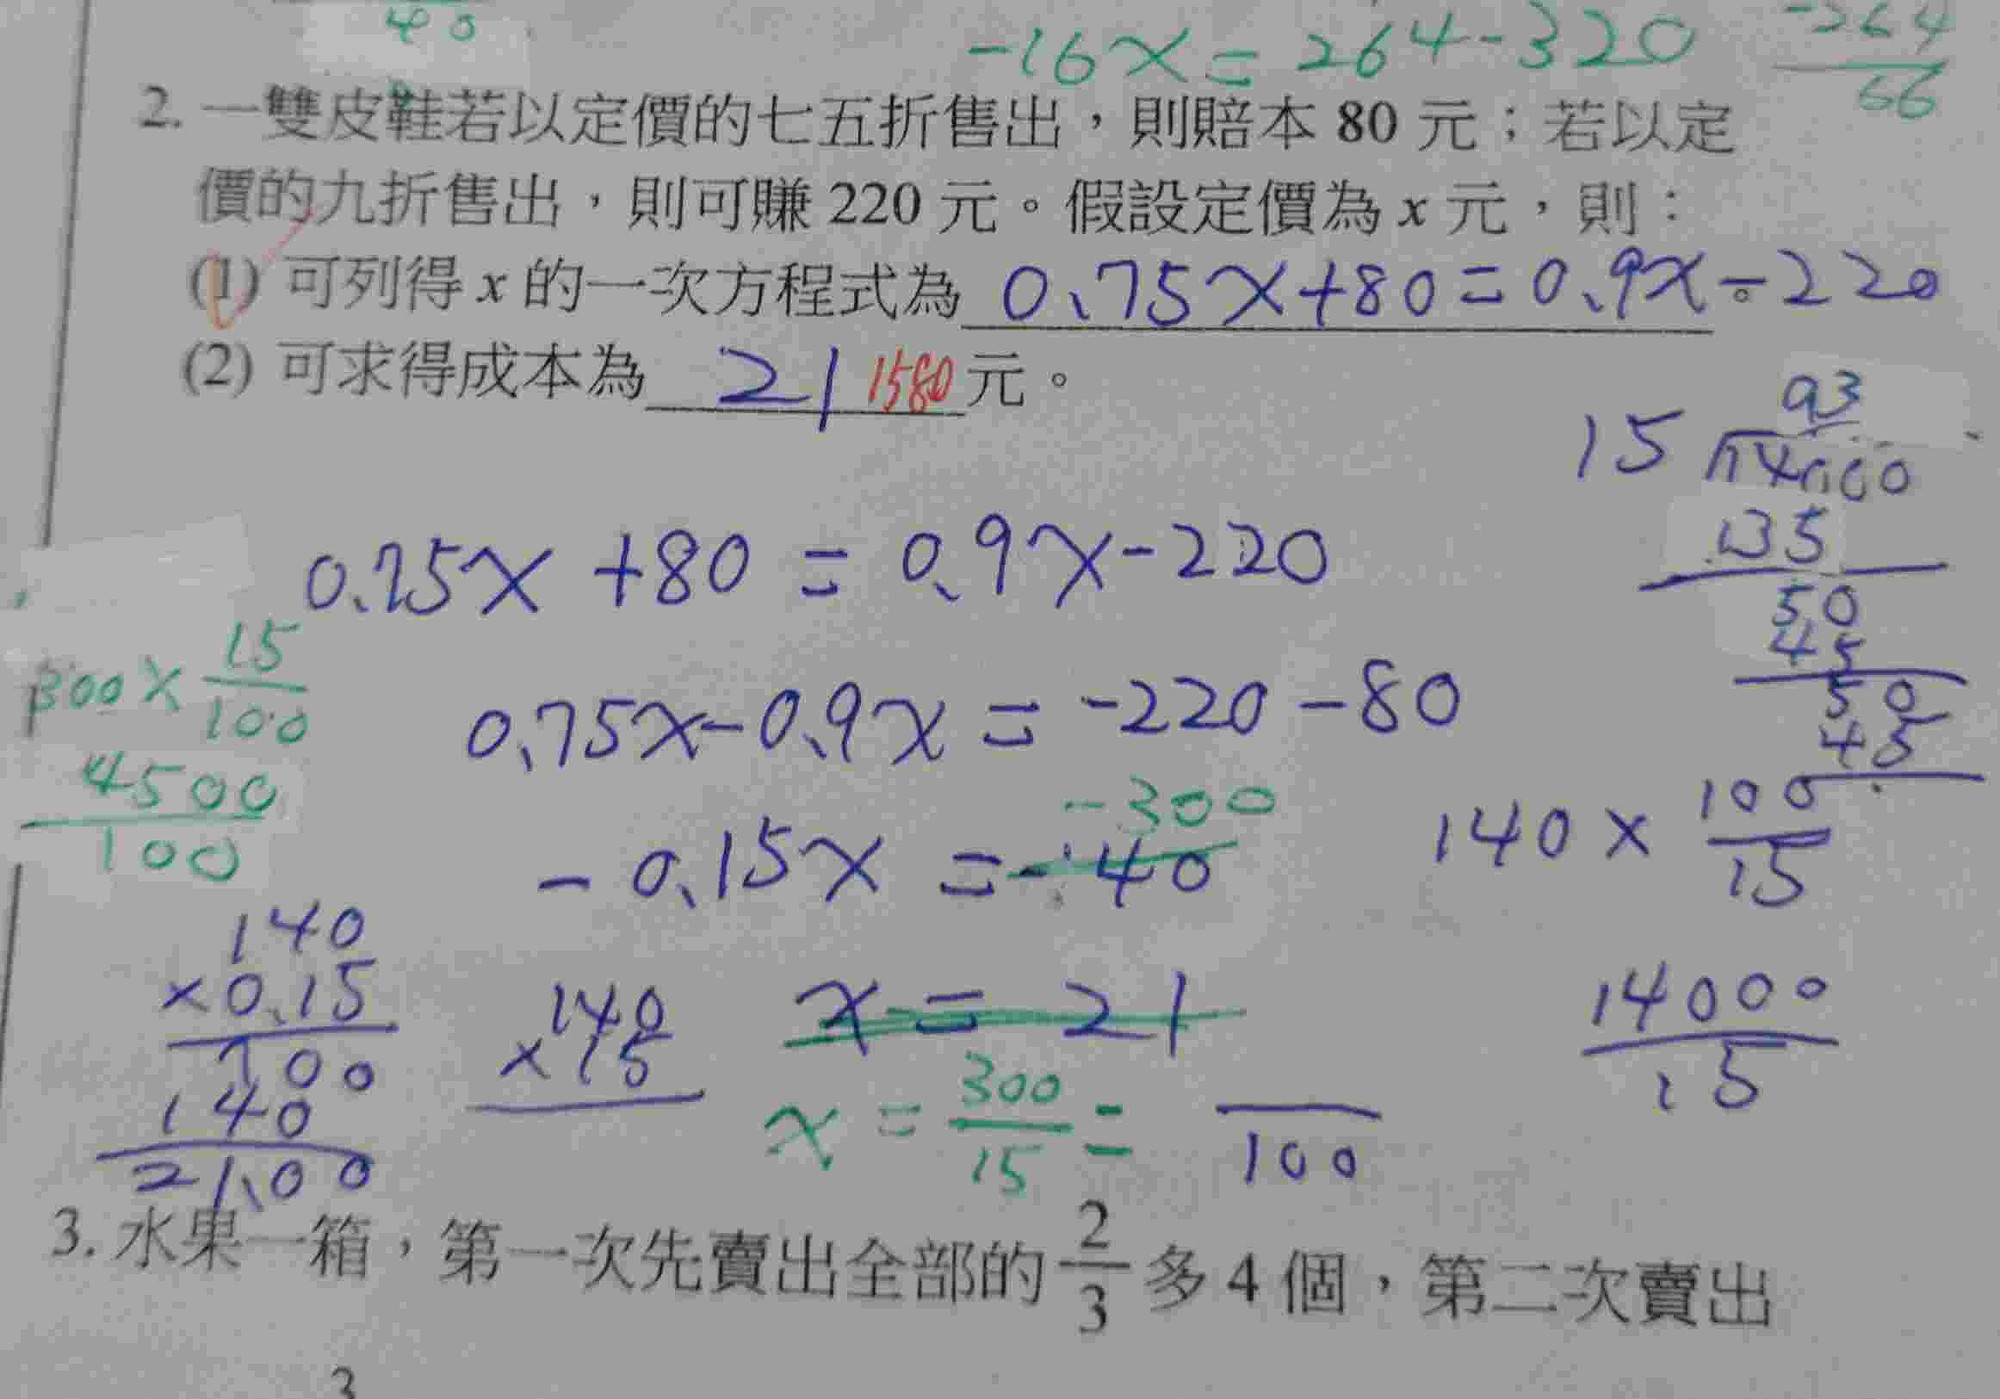 40
-16x = 264-320
-264
56
2. 一雙皮鞋若以定價的七五折售出，則賠本 80 元；若以定
價的九折售出，則可賺 220 元。假設定價為 x 元，則：
(1) 可列得 x 的一次方程式為 0.75x+80=0.9x-220。
(2) 可求得成本為 21 1580 元。
93
15 14000
135
50
45
50
45
0.75x +80 = 0.9x-220
300× 15/100
0.75x-0.9x = -220-80
4500/100
-300
-0.15x = -140
140× 100/15
140
×0.15
700
140
21.00
140
×15
x = 21
14000/15
x = 300/15 =
100
3. 水果一箱，第一次先賣出全部的 2/3 多 4 個，第二次賣出
3